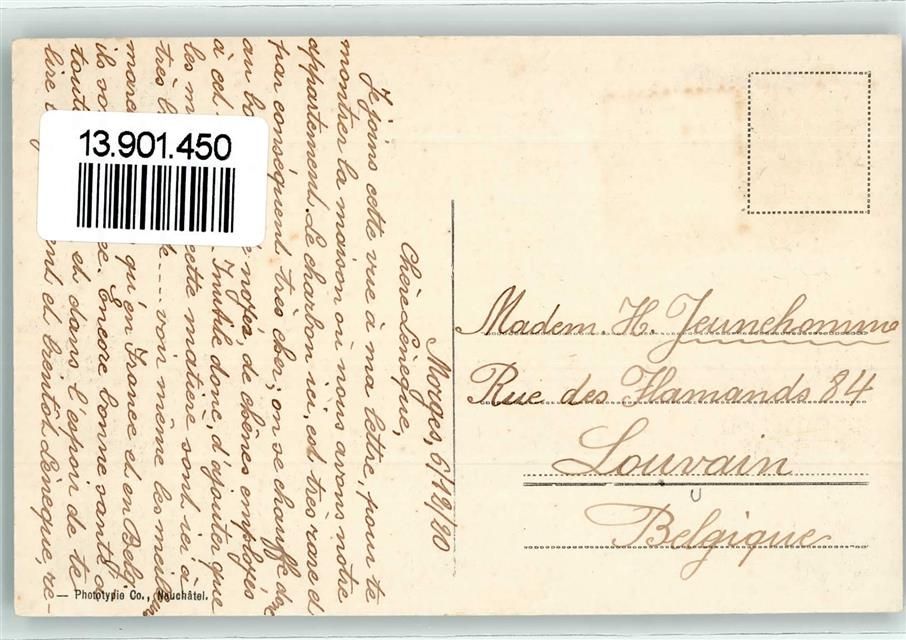 13.901.450
Morges, 6/12/20
Chère Lénegue,
Je joins cette vue à ma lettre, pour te
montrer la maison où nous avons notre
appartement. Le charbon ici, est très rare et
par conséquent très cher; on se chauffe donc
au bo notés de chênes employés
à cet Inutile donc, d'ajouter que
les m cette matière sont ici à
très b voir même les meil
mon qu'en France et en Belgi
ils so se. Encore bonne santé à
toute et dans l'espoir de te
lire ent et bientôt Lénegue, re-
Madem. H. Jeunehomme
Rue des Flamands 84
Louvain
Belgique
— Phototypie Co., Neuchâtel.